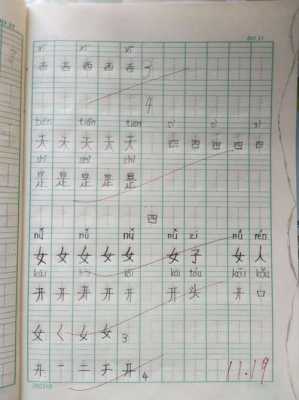 xī xī xī
西 西 西 西 西 3
4
tiān tiān tiān sì sì sì
天 天 天 天 天 四 四 四 四 四
shì shì shì
是 是 是 是 是
四
nǚ nǚ nǚ nǚ zi nǚ rén
女 女 女 女 女 女 子 女 人
kāi kāi kāi tóu kāi kǒu
开 开 开 开 开 开 头 开 口
女 く 女 女 3
开 一 二 开 开 4
11.19